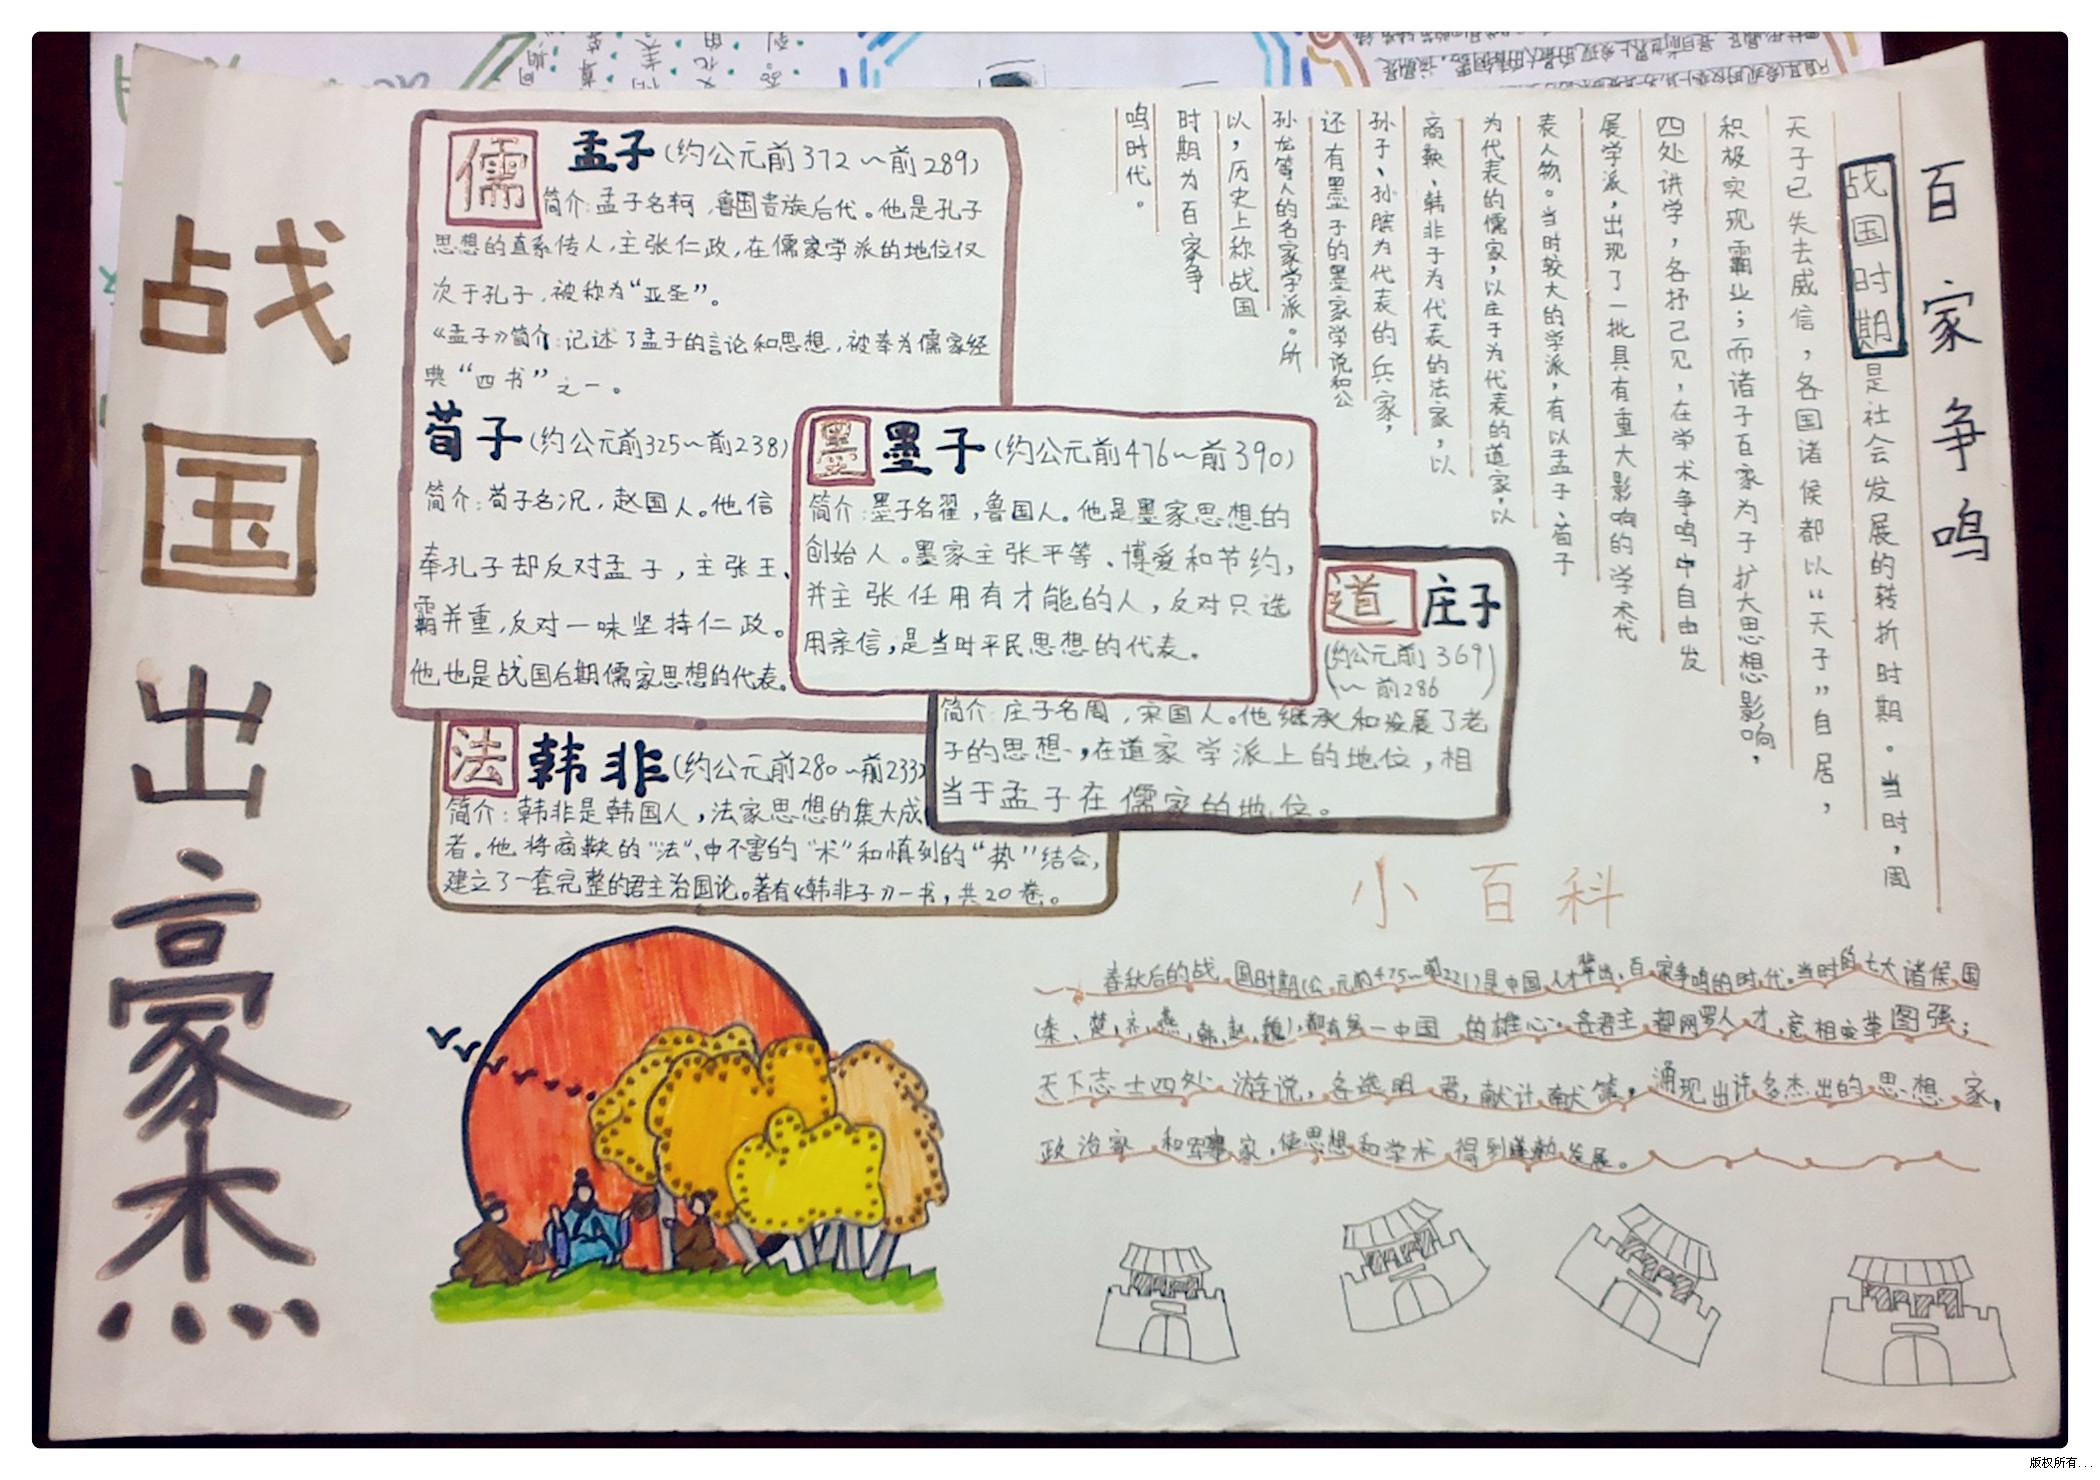 战国出豪杰
儒
孟子(约公元前372～前289)
简介:孟子名轲,鲁国贵族后代。他是孔子
思想的直系传人,主张仁政,在儒家学派的地位仅
次于孔子,被称为“亚圣”。
《孟子》简介:记述了孟子的言论和思想,被奉为儒家经
典“四书”之一。
荀子(约公元前325～前238)
简介:荀子名况,赵国人。他信
奉孔子却反对孟子,主张王、
霸并重,反对一味坚持仁政。
他也是战国后期儒家思想的代表。
墨
墨子(约公元前476～前390)
简介:墨子名翟,鲁国人。他是墨家思想的
创始人。墨家主张平等、博爱和节约,
并主张任用有才能的人,反对只选
用亲信,是当时平民思想的代表。
道
庄子
(约公元前369
～前286)
简介:庄子名周,宋国人。他继承和发展了老
子的思想,在道家学派上的地位,相
当于孟子在儒家的地位。
法
韩非(约公元前280～前233)
简介:韩非是韩国人,法家思想的集大成
者。他将商鞅的“法”、申不害的“术”和慎到的“势”结合,
建立了一套完整的君主治国论。著有《韩非子》一书,共20卷。
百家争鸣
战国时期是社会发展的转折时期。当时,周
天子已失去威信,各国诸侯都以“天子”自居,
积极实现霸业;而诸子百家为于扩大思想影响,
四处讲学,各抒己见,在学术争鸣中自由发
展学派,出现了一批具有重大影响的学术代
表人物。当时较大的学派,有以孟子、荀子
为代表的儒家,以庄子为代表的道家,以
商鞅、韩非子为代表的法家,以
孙子、孙膑为代表的兵家,
还有墨子的墨家学说和公
孙龙等人的名家学派。所
以,历史上称战国
时期为百家争
鸣时代。
小百科
春秋后的战国时期(公元前475～前221)是中国人才辈出、百家争鸣的时代。当时的七大诸侯国
(秦、楚、齐、燕、韩、赵、魏),都有统一中国的雄心。各君主都网罗人才,竞相变革图强;
天下志士四处游说,各选明君,献计献策,涌现出许多杰出的思想家,
政治家和军事家,使思想和学术得到蓬勃发展。
版权所有...